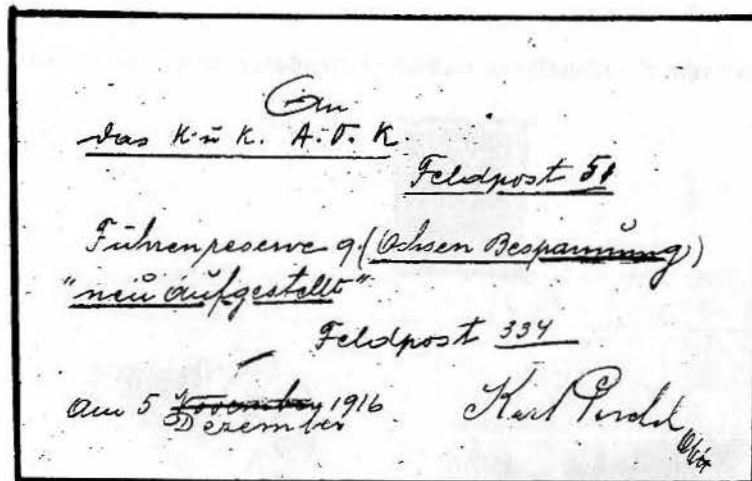 An
das K. u. K. A. O. K.
Feldpost 51
Fuhrenreserve 9. (Ochsen Bespannung)
"neu aufgestellt"
Feldpost 334
Am 5 November 1916
Dezember
Karl